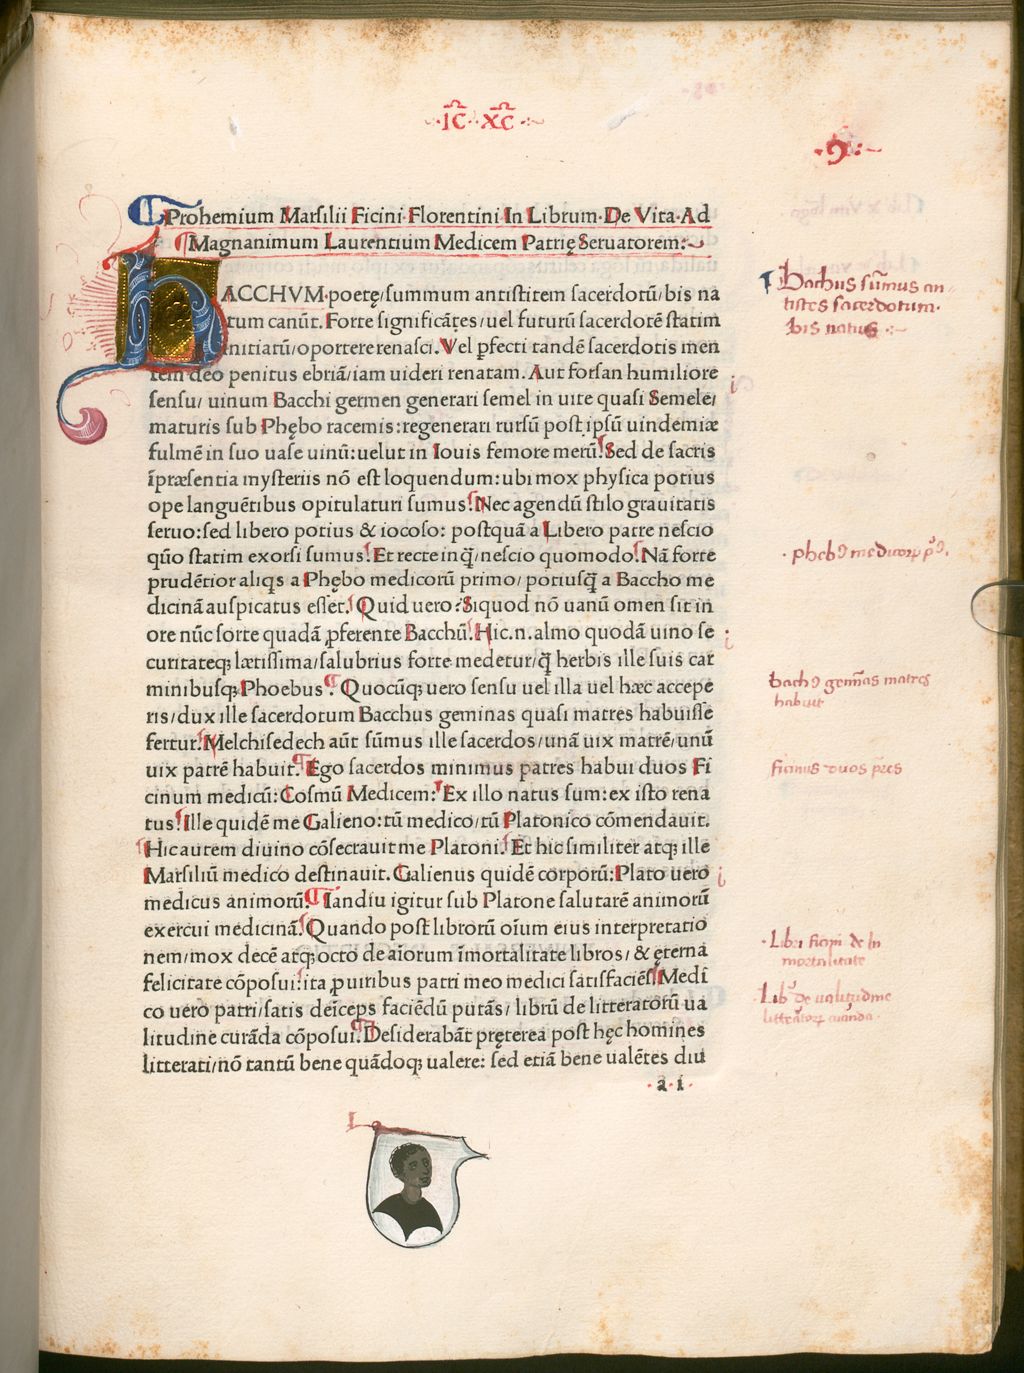 ·IC̅· ·XC̅·
·9:~
Prohemium Marsilii Ficini Florentini In Librum De Vita Ad
Magnanimum Laurentium Medicem Patrię Seruatorem:~
BACCHVM·poetę/summum antistitem sacerdotū/bis na
tum canūt. Forte significātes/uel futurū sacerdotē statim
initiatū/oportere renasci. Vel ꝑfecti tandē sacerdotis men
tem deo penitus ebriā/iam uideri renatam. Aut forsan humiliore
sensu/ uinum Bacchi germen generari semel in uite quasi Semele/
maturis sub Phębo racemis:regenerari rursū post ipsū uindemiæ
fulmē in suo uase uinū:uelut in Iouis femore merū. Sed de sacris
īpræsentia mysteriis nō est loquendum:ubi mox physica potius
ope languētibus opitulaturi sumus. Nec agendū stilo grauitatis
seruo:sed libero potius & iocoso: postquā a Libero patre nescio
quō statim exorsi sumus. Et recte inq̄/nescio quomodo. Nā forte
prudētior aliqs a Phębo medicorū primo/ potiusq̄ a Baccho me
dicinā auspicatus esset. Quid uero? Siquod nō uanū omen sit in
ore nūc sorte quadā ꝓferente Bacchū. Hic.n.almo quodā uino se
curitateqꝫ lætissima/salubrius forte medetur/q̄ herbis ille suis car
minibusqꝫ Phoebus. Quocūqꝫ uero sensu uel illa uel hæc accepe
ris/dux ille sacerdotum Bacchus geminas quasi matres habuisse
fertur. Melchisedech aūt sūmus ille sacerdos/unā uix matrē/unū
uix patrē habuit. Ego sacerdos minimus patres habui duos Fi
cinum medicū: Cosmū Medicem: Ex illo natus sum:ex isto rena
tus. Ille quidē me Galieno:tū medico/tū Platonico cōmendauit.
Hic autem diuino cōsecrauit me Platoni. Et hic similiter atqꝫ ille
Marsiliū medico destinauit. Galienus quidē corporū:Plato uero
medicus animorū. Iandiu igitur sub Platone salutarē animorū
exercui medicinā. Quando post librorū oīum eius interpretatio
nem/mox decē atqꝫ octo de aīorum īmortalitate libros/ & ęterna
felicitate cōposui:ita ꝓuiribus patri meo medici satisfaciēs. Medi
co uero patri/satis deīceps faciēdū putās/ librū de litteratorū ua
litudine curāda cōposui. Desiderabāt pręterea post hęc homines
litterati/nō tantū bene quādoqꝫ ualere: sed etiā bene ualētes diu
·a·i·
Bachus sūmus an
tistes sacerdotum·
bis natus :~
·pheb9 medicorꝝ p9.
bach9 gemīas matres
habuit
ficinus duos pr̄es
·Libri ficini de īn
mortalitate
·Lib' de ualitudine
littēratorꝝ curanda·